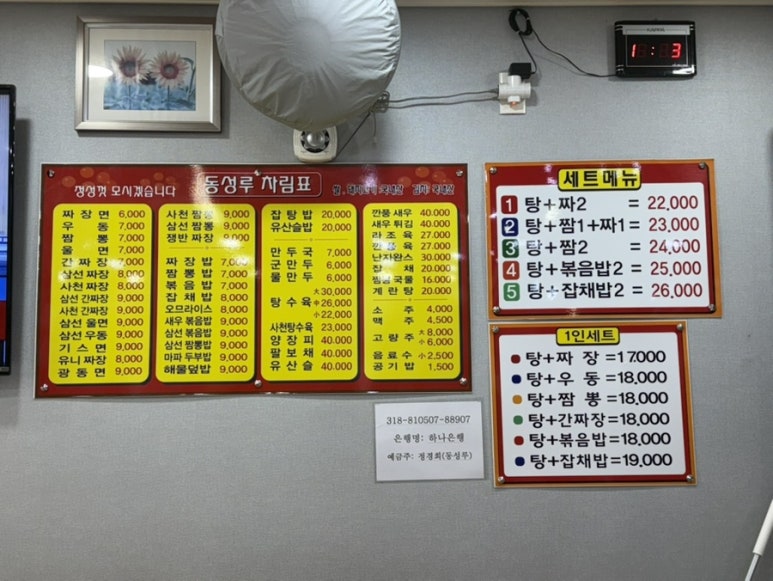 정성껏 모시겠습니다 동성루 차림표 쌀, 돼지고기 국내산 김치 국내산
짜 장 면 6,000
우 동 7,000
짬 뽕 7,000
울 면 7,000
간 짜 장 7,000
삼선 짜장 8,000
사천 짜장 8,000
삼선 간짜장 9,000
사천 간짜장 9,000
삼선 울면 9,000
삼선 우동 9,000
기 스 면 9,000
유니 짜장 8,000
광 동 면 9,000
사천 짬뽕 9,000
삼선 짬뽕 9,000
쟁반 짜장 9,000
짜 장 밥 7,000
짬 뽕 밥 7,000
볶 음 밥 7,000
잡 채 밥 8,000
오므라이스 8,000
새우 볶음밥 9,000
삼선 볶음밥 9,000
삼선 짬뽕밥 9,000
마파 두부밥 9,000
해물덮밥 9,000
잡 탕 밥 20,000
유산슬밥 20,000
만 두 국 7,000
군 만 두 6,000
물 만 두 6,000
탕 수 육 大30,000
中26,000
小22,000
사천탕수육 23,000
양 장 피 40,000
팔 보 채 40,000
유 산 슬 40,000
깐풍 새우 40,000
새우 튀김 40,000
라 조 육 27,000
깐 풍 육 27,000
난자완스 30,000
잡 채 20,000
짬뽕국물 16,000
계 란 탕 20,000
소 주 4,000
맥 주 4,500
고 량 주 大8,000
小6,000
음 료 수 小2,500
공 기 밥 1,500
세트메뉴
1 탕+짜2 = 22,000
2 탕+짬1+짜1= 23,000
3 탕+짬2 = 24,000
4 탕+볶음밥2 = 25,000
5 탕+잡채밥2 = 26,000
1인세트
탕+짜 장=17.000
탕+우 동=18.000
탕+짬 뽕=18.000
탕+간짜장=18.000
탕+볶음밥=18.000
탕+잡채밥=19.000
318-810507-88907
은행명: 하나은행
예금주: 정경희(동성루)